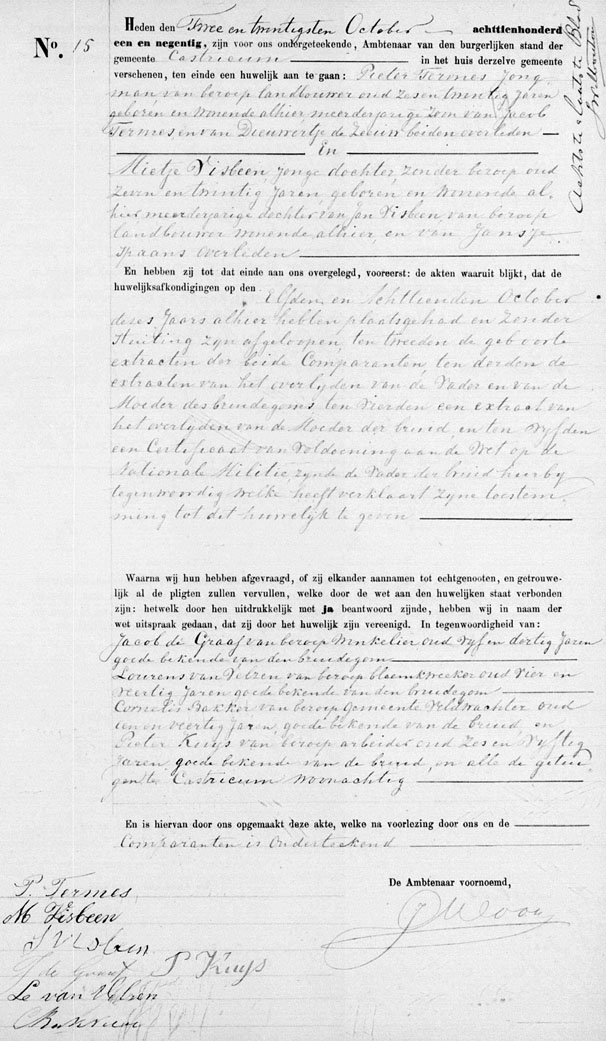 No. 15
Heden den Twee en twintigsten October achttienhonderd
een en negentig, zijn voor ons ondergeteekende, Ambtenaar van den burgerlijken stand der
gemeente Castricum in het huis derzelve gemeente
verschenen, ten einde een huwelijk aan te gaan: Pieter Termes Jong
man van beroep landbouwer oud Zes en twintig Jaren
geboren en Wonende alhier meerderjarige Zoon van Jacob
Termes en van Dieuwertje de Zeeuw beiden overleden
En
Mietje Visbeen Jonge dochter Zonder beroep oud
Zeven en twintig Jaren, geboren en Wonende al,
hier meerderjarige dochter van Jan Visbeen, van beroep
landbouwer Wonende alhier, en van Jansje
Spaans overleden
En hebben zij tot dat einde aan ons overgelegd, vooreerst: de akten waaruit blijkt, dat de
huwelijksafkondigingen op den Elfden en Achttienden October
dezes Jaars alhier hebben plaatsgehad en Zonder
Stuiting zijn afgeloopen, ten tweeden de geboorte
extracten der beide Comparanten, ten derden de
extracten van het overlyden van de Vader en van de
Moeder des bruidegoms, ten Vierden een extract van
het overlyden van de Moeder der bruid, en ten Vyfden
een Certificaat van Voldoening aan de Wet op de
Nationale Militie, zynde de Vader der bruid hierby
tegenwoordig Welke heeft verklaart zyne toestem,
ming tot dit huwelyk te geven
Waarna wij hun hebben afgevraagd, of zij elkander aannamen tot echtgenooten, en getrouwe-
lijk al de pligten zullen vervullen, welke door de wet aan den huwelijken staat verbonden
zijn: hetwelk door hen uitdrukkelijk met ja beantwoord zijnde, hebben wij in naam der
wet uitspraak gedaan, dat zij door het huwelijk zijn vereenigd. In tegenwoordigheid van:
Jacob de Graaf van beroep Winkelier oud Vyf en dertig Jaren
goede bekende van den bruidegom
Lourens van Velzen van beroep bloemkweeker oud Vier en
Veertig Jaren goede bekende van den bruidegom
Cornelis Bakker van beroep Gemeente Veldwachter oud
een en Veertig Jaren, goede bekende van de bruid, en
Pieter Kuys van beroep arbeider oud Zes en Vyftig
Jaren, goede bekende van de bruid, en alle de getui,
gen te Castricum Woonachtig
En is hiervan door ons opgemaakt deze akte, welke na voorlezing door ons en de
Comparanten is Onderteekend
De Ambtenaar voornoemd,
P. Termes
M Visbeen
J Visbeen
J de Graaf
P Kuys
L. van Velzen
Achtste & laatste Blad